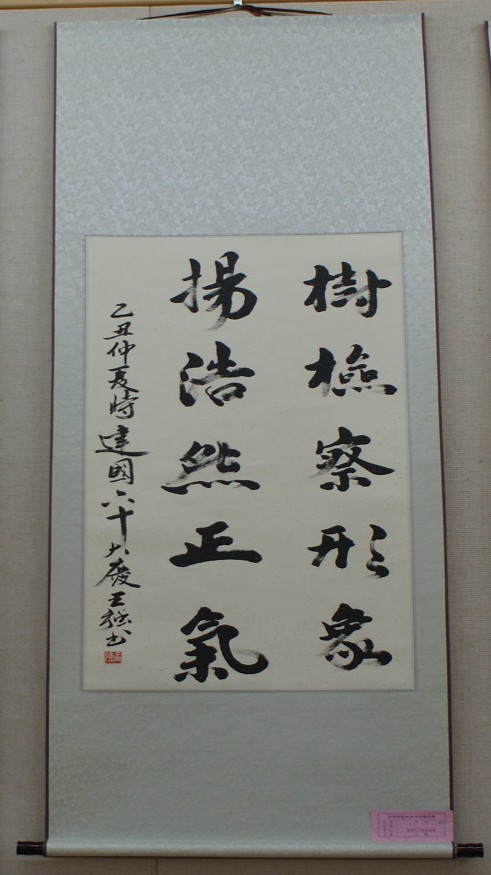 樹檢察形象
揚浩然正氣
乙丑仲夏時建國六十大慶王強書